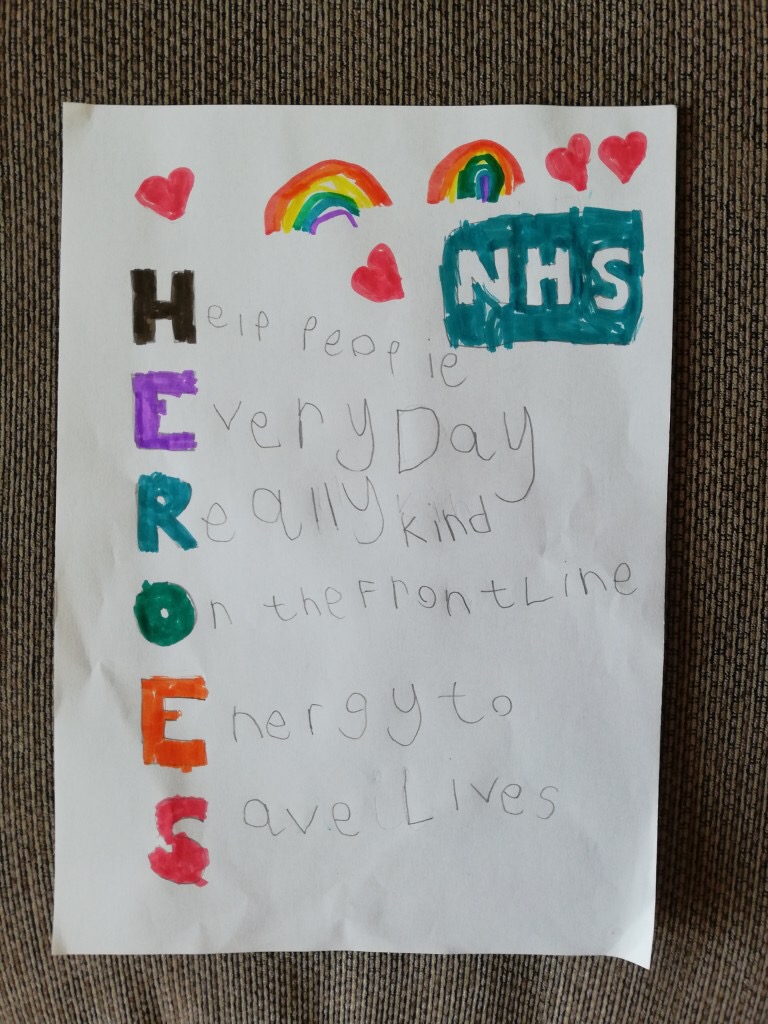 NHS
Help people
Every Day
Really kind
On the FrontLine
Energy to
Save Lives